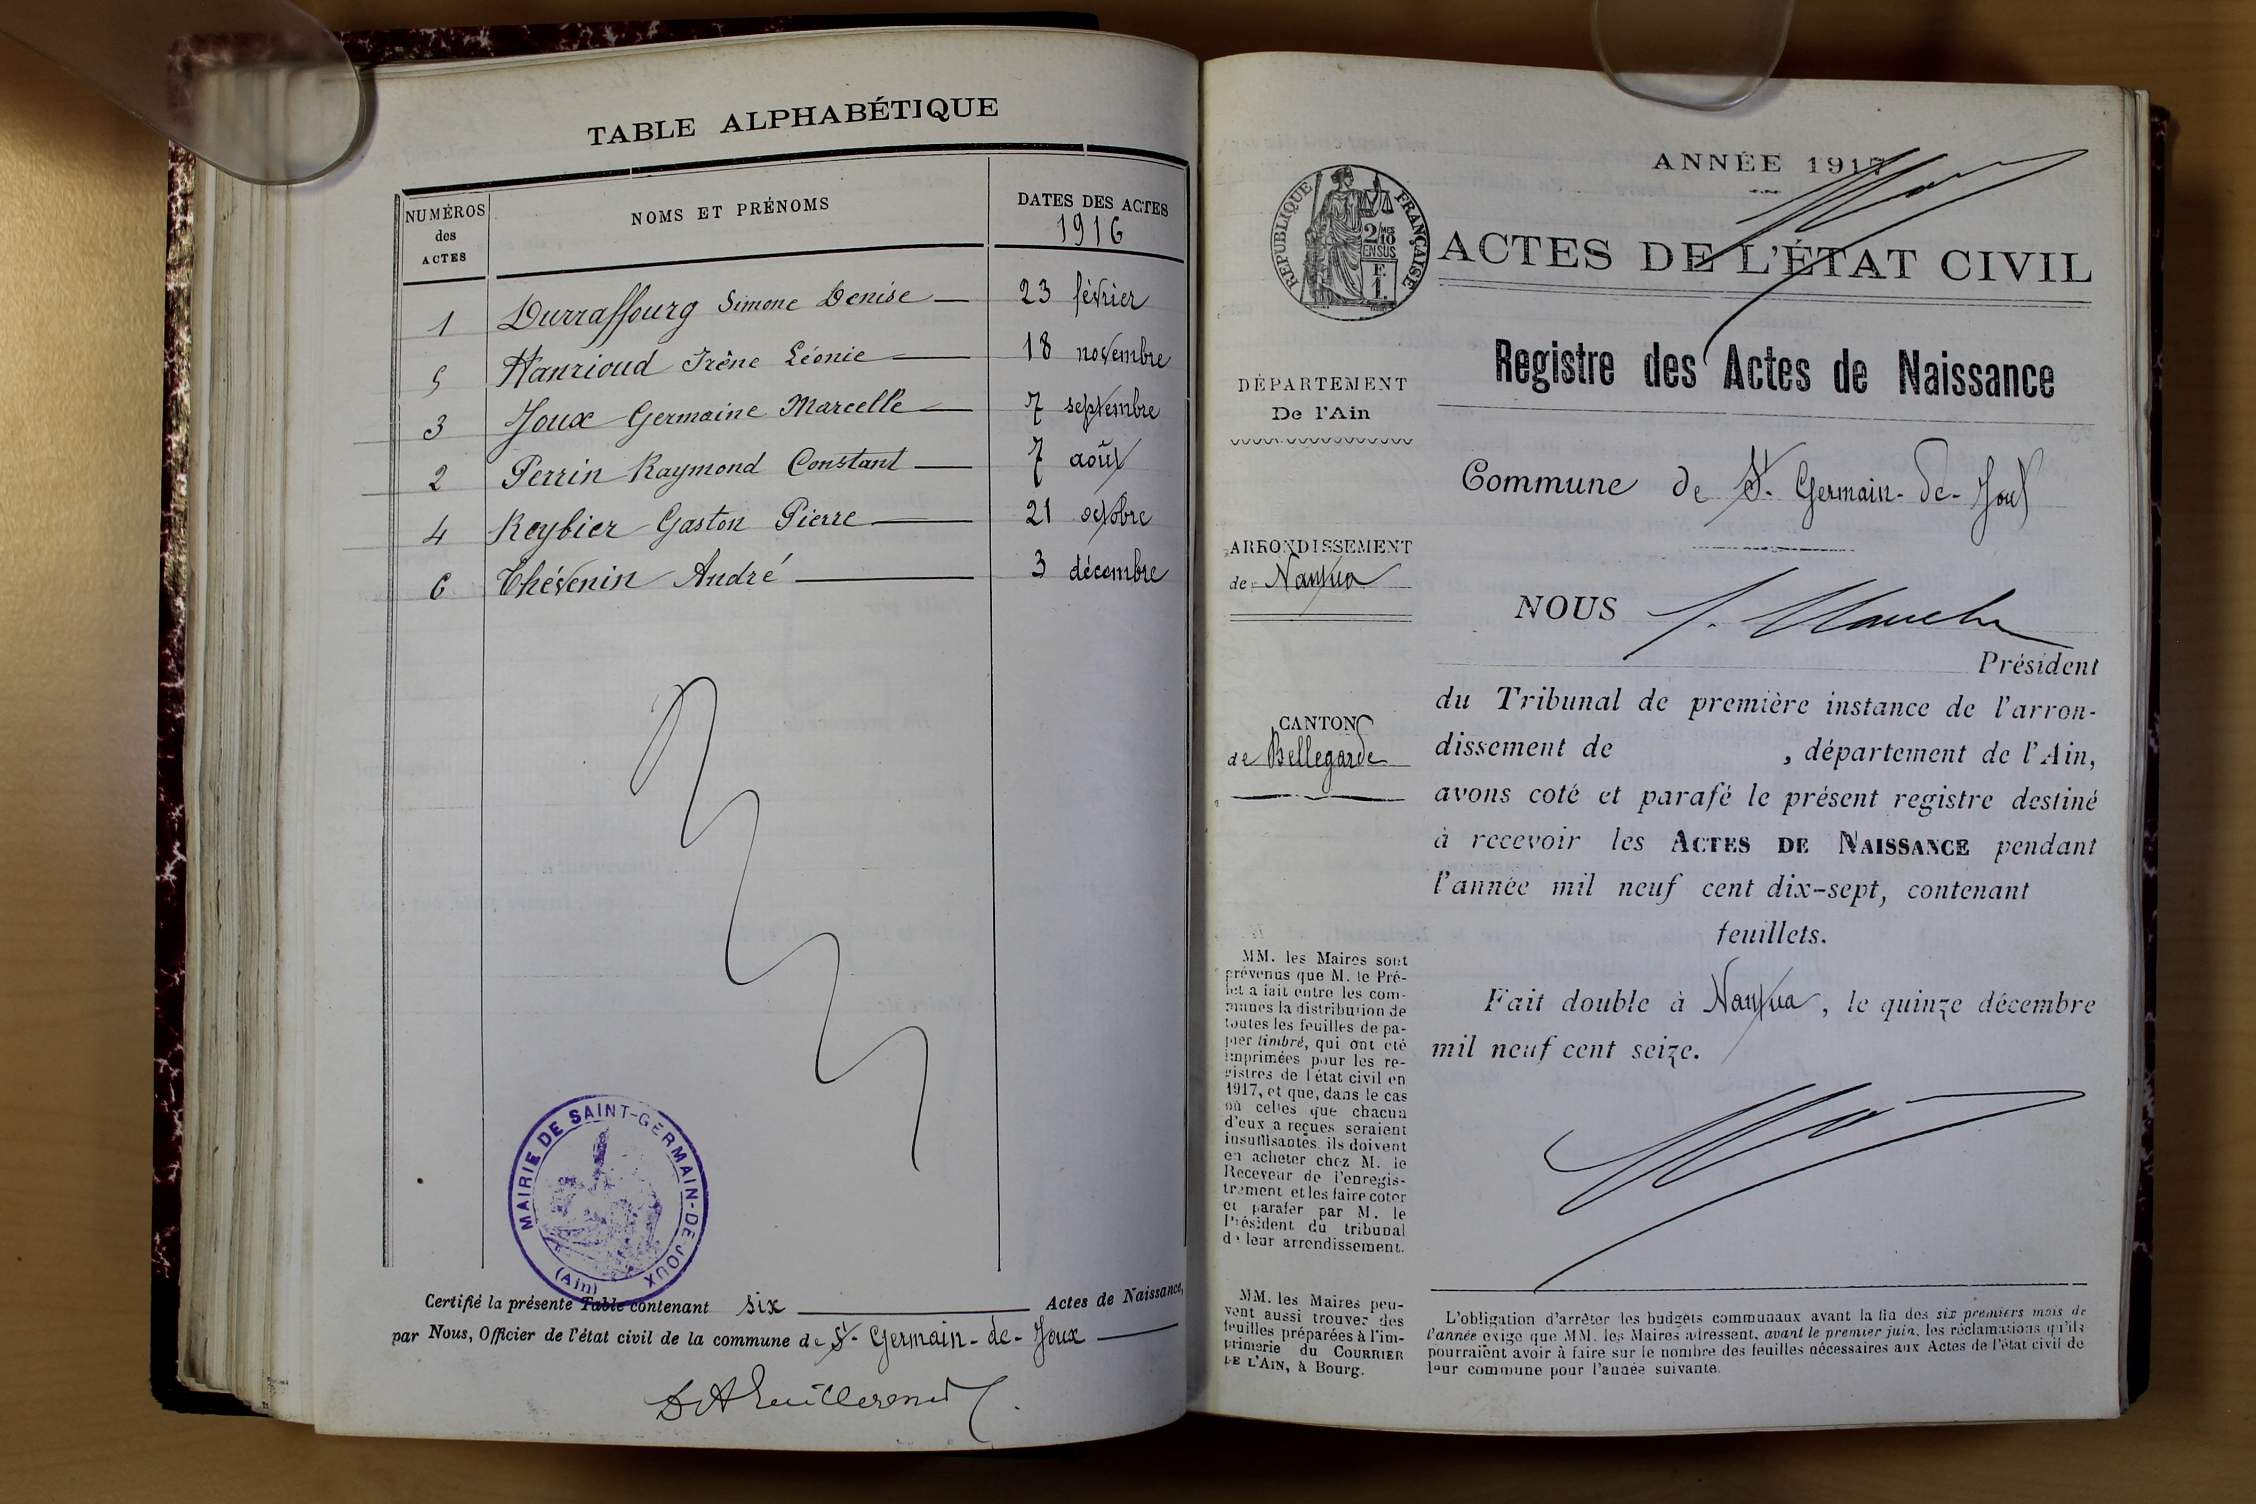 TABLE ALPHABÉTIQUE
NUMÉROS
des
ACTES
NOMS ET PRÉNOMS
DATES DES ACTES
1916
1 Durraffourg Simone Denise 23 février
5 Hanrioud Irène Léonie 18 novembre
3 Joux Germaine Marcelle 7 septembre
2 Perrin Raymond Constant 7 août
4 Reybier Gaston Pierre 21 octobre
6 Thévenin André 3 décembre
MAIRIE DE SAINT-GERMAIN-DE-JOUX
(Ain)
Certifié la présente Table contenant six Actes de Naissance,
par Nous, Officier de l'état civil de la commune de St. Germain-de-Joux
ANNÉE 1917
RÉPUBLIQUE FRANÇAISE
ACTES DE L'ÉTAT CIVIL
Registre des Actes de Naissance
DÉPARTEMENT
De l'Ain
Commune de St. Germain-de-Joux
ARRONDISSEMENT
de Nantua
NOUS
Président
du Tribunal de première instance de l'arron-
dissement de , département de l'Ain,
avons coté et parafé le présent registre destiné
à recevoir les ACTES DE NAISSANCE pendant
l'année mil neuf cent dix-sept, contenant
feuillets.
Fait double à Nantua, le quinze décembre
mil neuf cent seize.
CANTON
de Bellegarde
MM. les Maires sont
prévenus que M. le Pré-
fet a fait entre les com-
munes la distribution de
toutes les feuilles de pa-
pier timbré, qui ont été
imprimées pour les re-
gistres de l'état civil en
1917, et que, dans le cas
où celles que chacun
d'eux a reçues seraient
insuffisantes, ils doivent
en acheter chez M. le
Receveur de l'enregis-
trement et les faire coter
et parafer par M. le
Président du tribunal
de leur arrondissement.
MM. les Maires peu-
vent aussi trouver des
feuilles préparées à l'im-
primerie du COURRIER
DE L'AIN, à Bourg.
L'obligation d'arrêter les budgets communaux avant la fin des six premiers mois de
l'année exige que MM. les Maires adressent, avant le premier juin, les réclamations qu'ils
pourraient avoir à faire sur le nombre des feuilles nécessaires aux Actes de l'état civil de
leur commune pour l'année suivante.